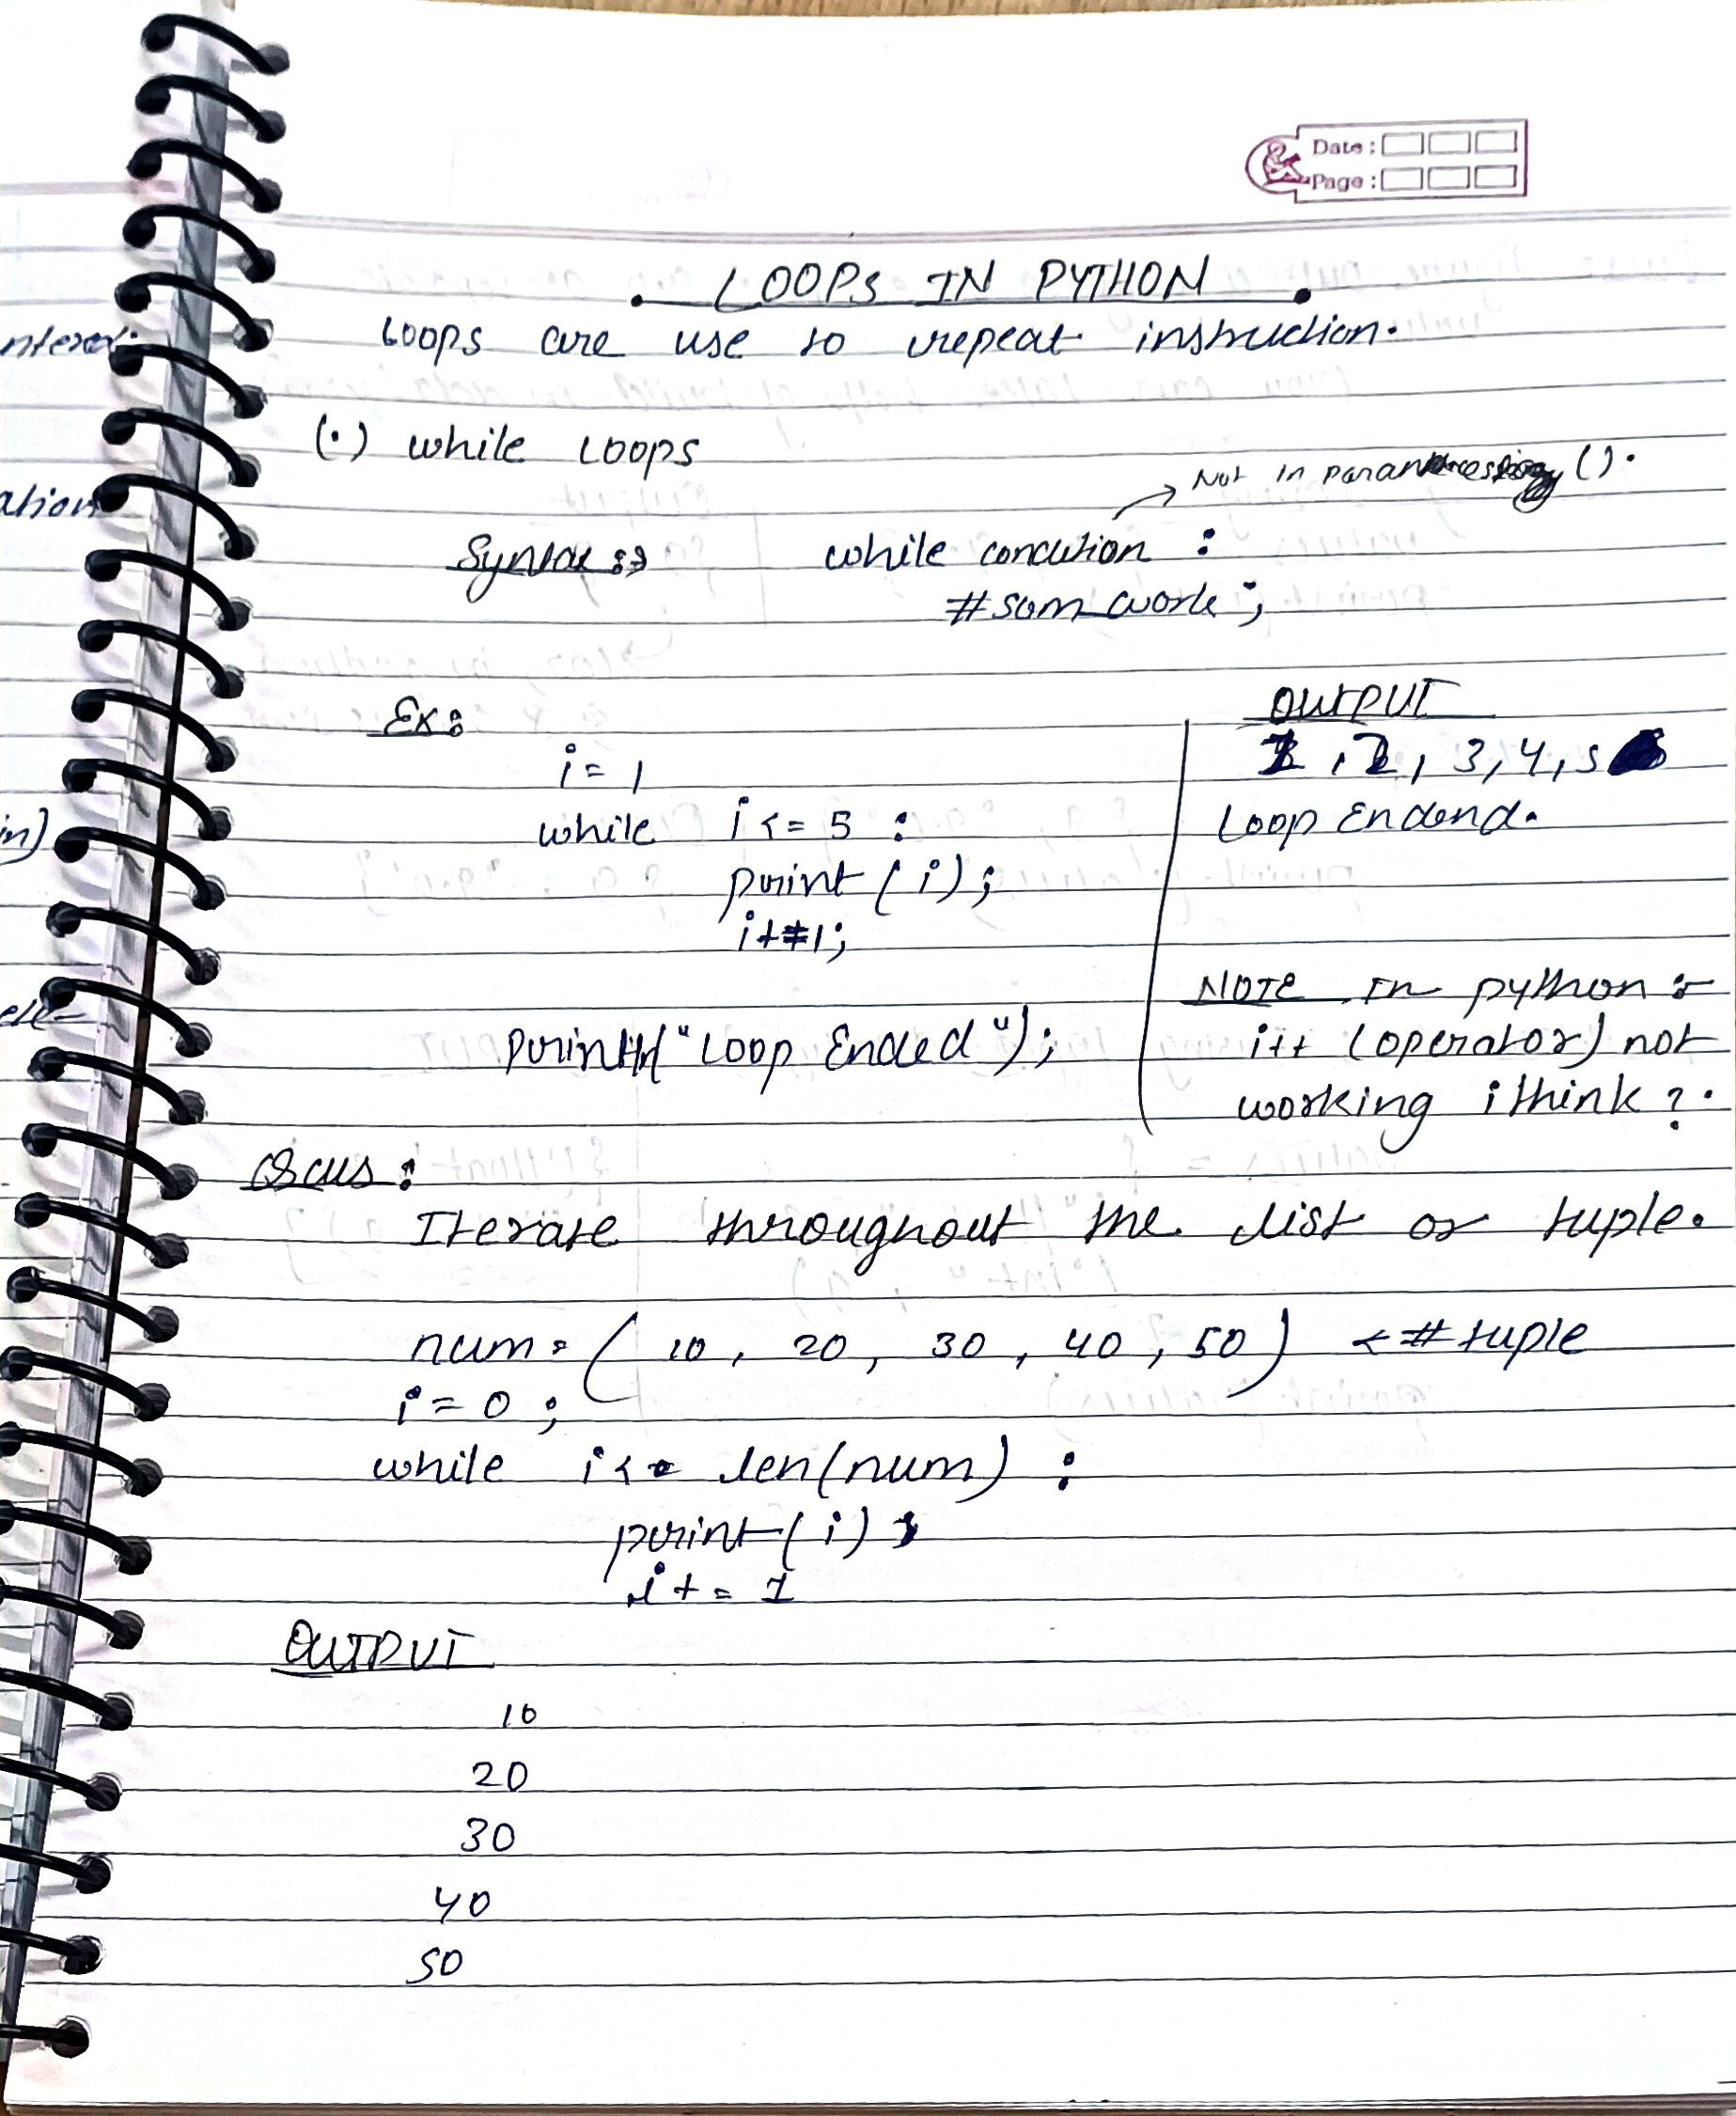 Date :
Page :
LOOPS IN PYTHON
Loops are use to repeat instruction.
(•) while Loops
→ Not in
().
Syntax :→
while condition :
#som work ;
Ex:
i = 1
while i <= 5 :
print (i) ;
i+=1;
print("Loop Ended");
OUTPUT
1, 2, 3, 4, 5
Loop Endend.
NOTE In python :-
i++ (operator) not
working i think ?.
Iterate throughout the list or tuple.
num = ( 10 , 20 , 30 , 40 , 50 ) <-# tuple
i = 0 ;
while i < len(num) :
print (i)
i += 1
OUTPUT
10
20
30
40
50